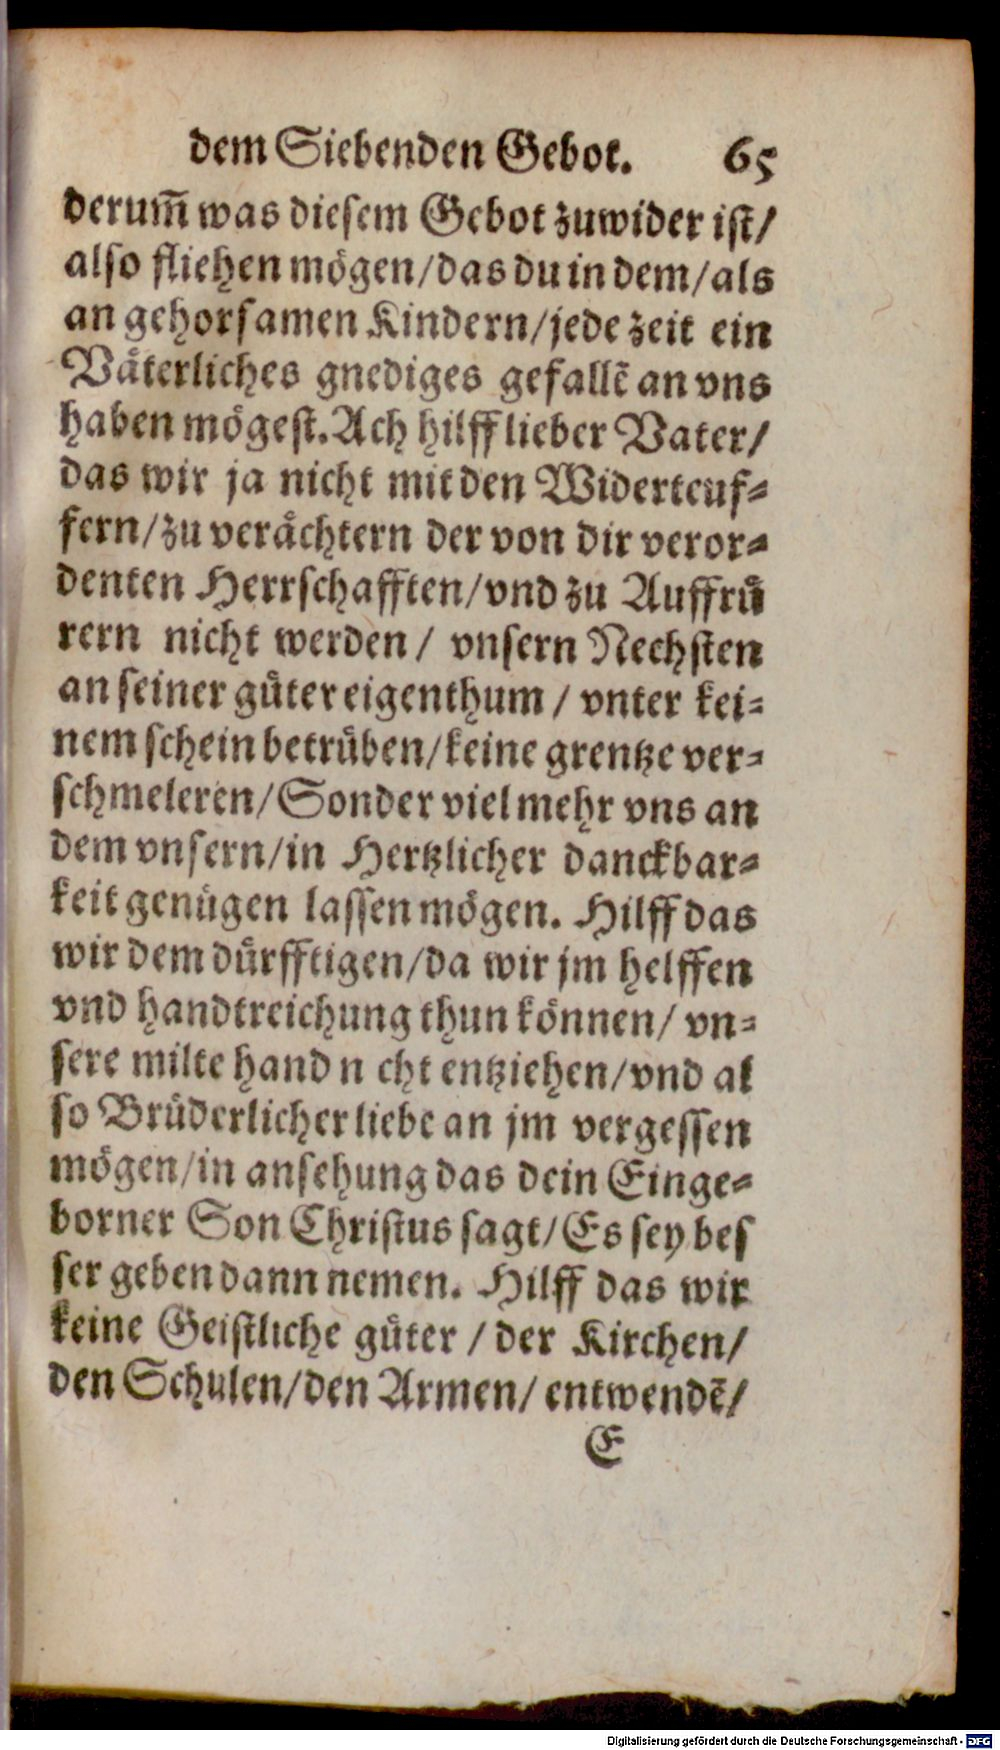 dem Siebenden Gebot. 65
derum̃ was diesem Gebot zuwider ist/
also fliehen mögen/das du in dem/als
an gehorsamen Kindern/jede zeit ein
Väterliches gnediges gefallẽ an vns
haben mögest. Ach hilff lieber Vater/
das wir ja nicht mit den Widerteuf-
fern/zu verächtern der von dir veror-
denten Herrschafften/vnd zu Auffrü
rern nicht werden/ vnsern Nechsten
an seiner güter eigenthum / vnter kei-
nem schein betrüben/keine grentze ver-
schmeleren/Sonder viel mehr vns an
dem vnsern/in Hertzlicher danckbar-
keit genügen lassen mögen. Hilff das
wir dem dürfftigen/da wir jm helffen
vnd handtreichung thun können/ vn-
sere milte hand n cht entziehen/vnd al
so Brüderlicher liebe an jm vergessen
mögen/in ansehung das dein Einge-
borner Son Christus sagt/Es sey bes
ser geben dann nemen. Hilff das wir
keine Geistliche güter / der Kirchen/
den Schulen/den Armen/ entwendẽ/
E
Digitalisierung gefördert durch die Deutsche Forschungsgemeinschaft - DFG